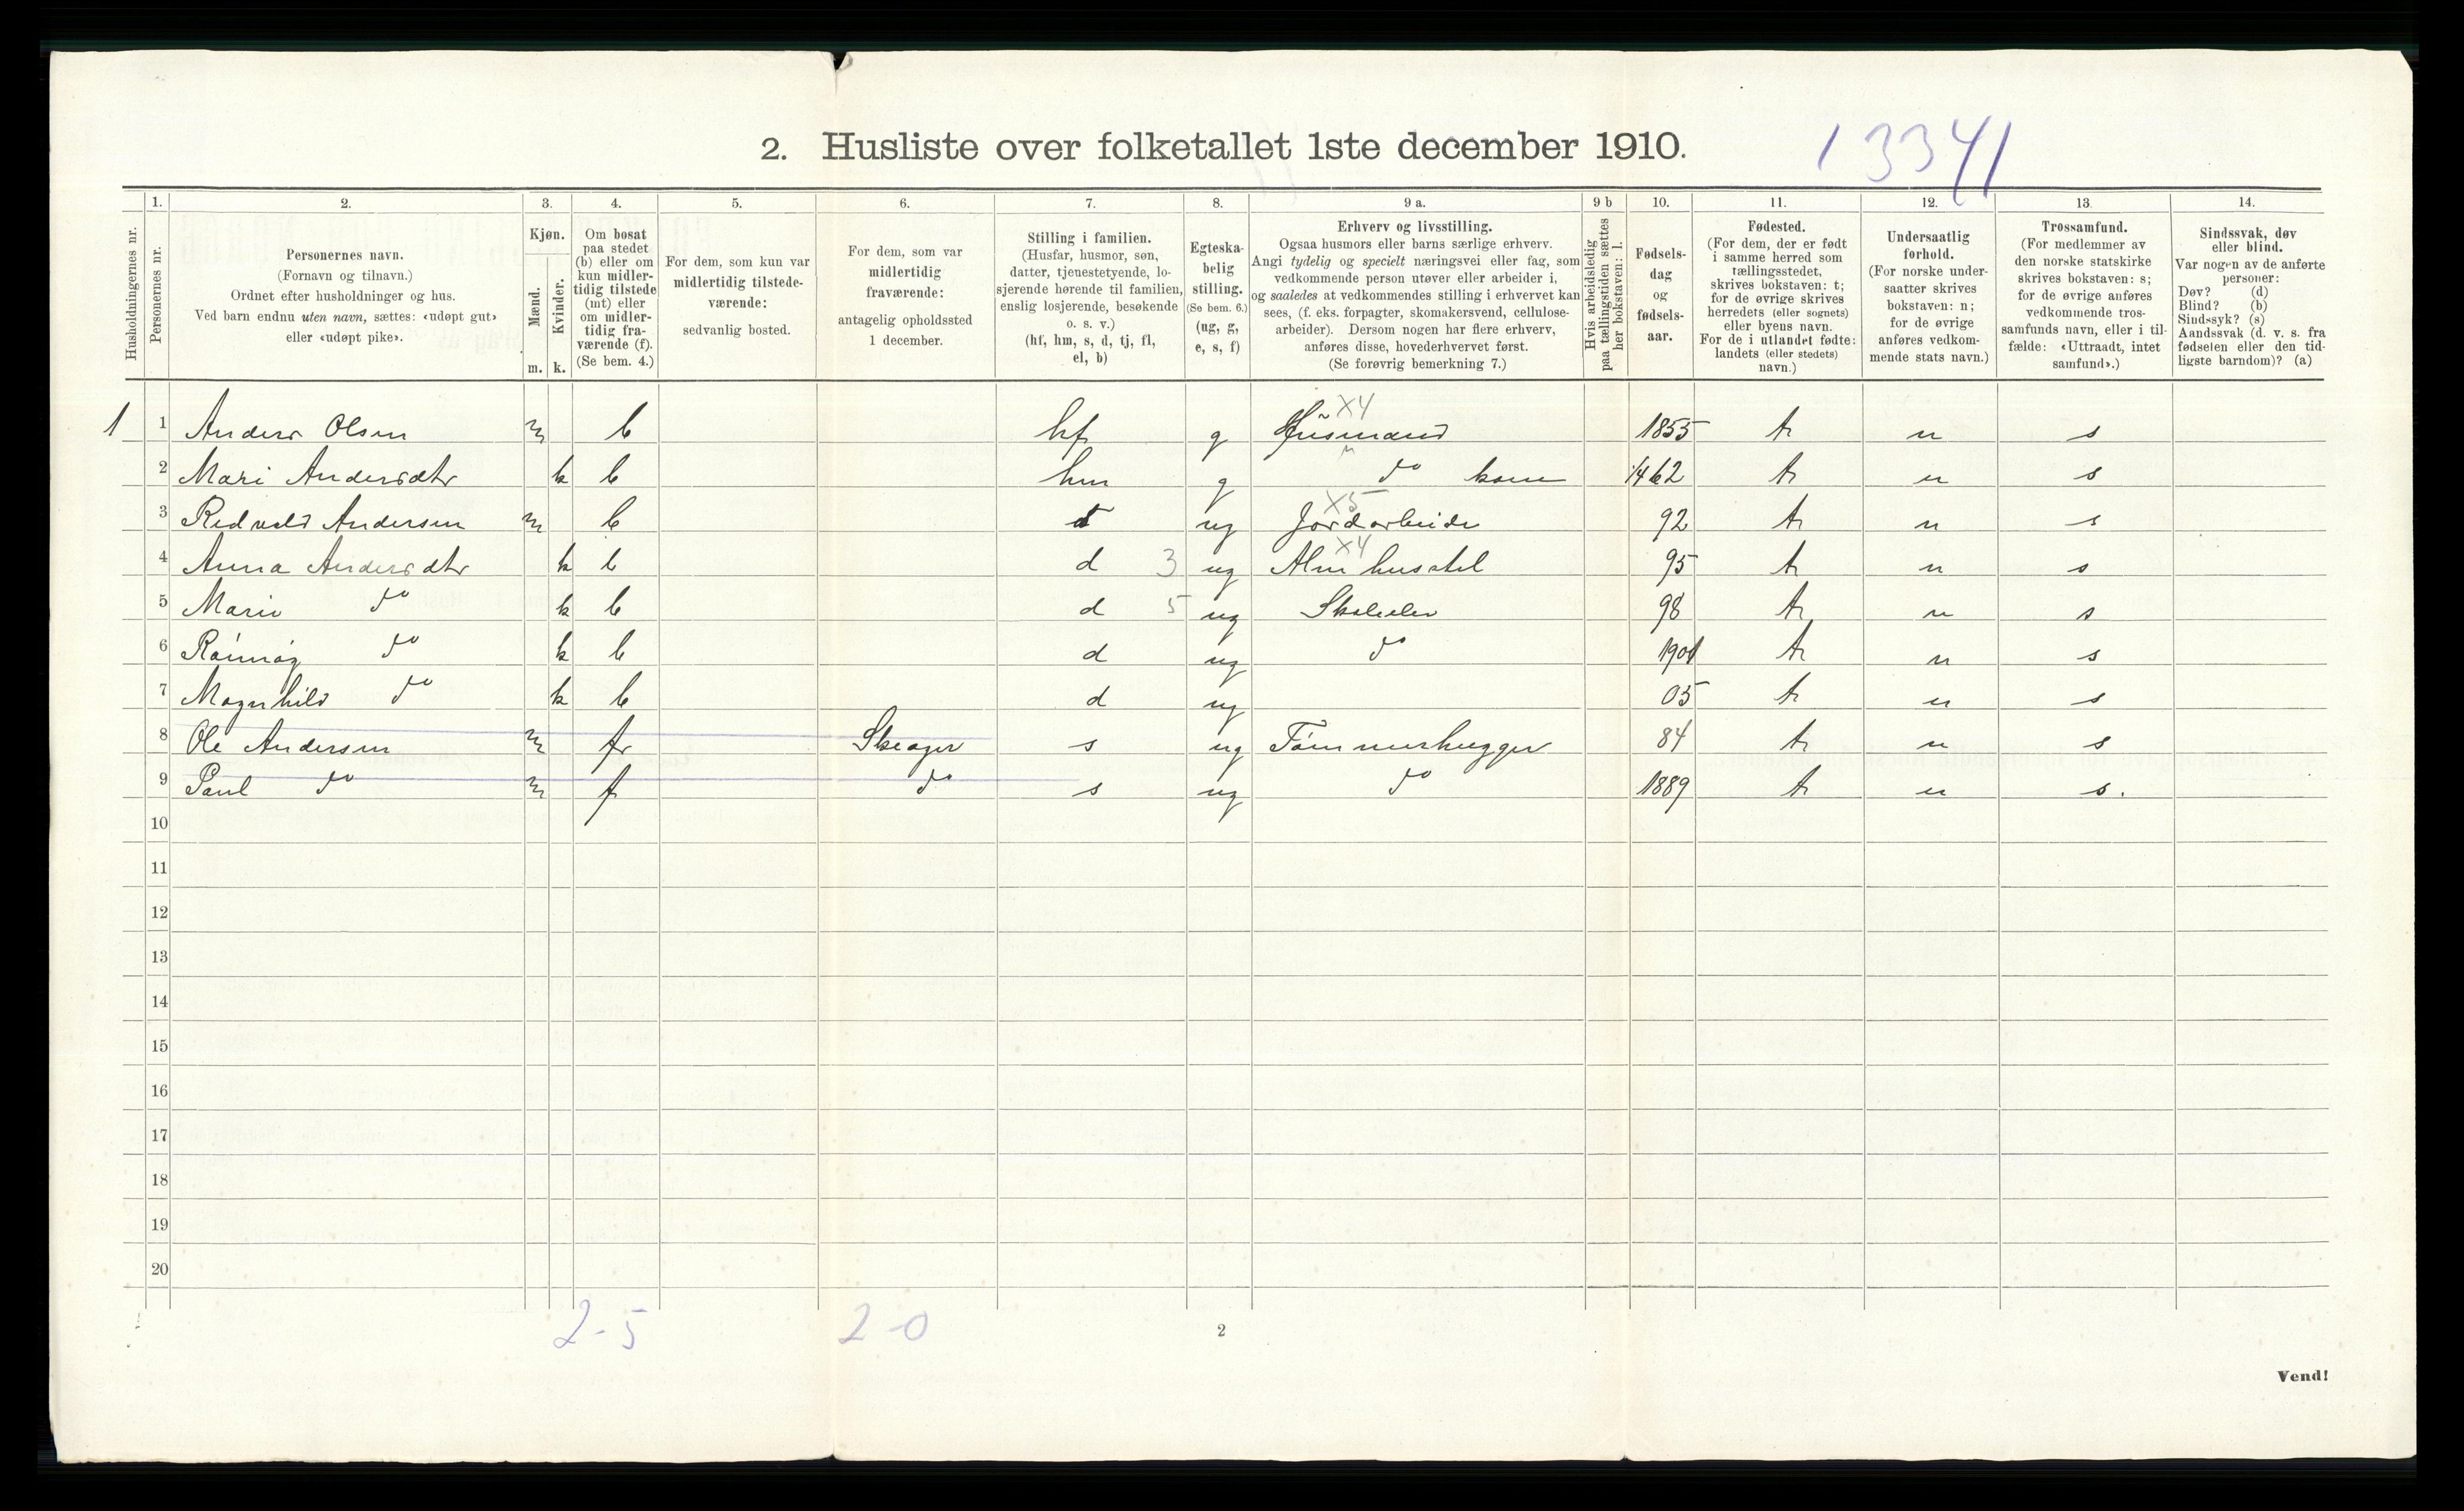 2. Husliste over folketallet 1ste december 1910.
13341
Husholdningernes nr.
1. Personernes nr.
2. Personernes navn.
(Fornavn og tilnavn.)
Ordnet efter husholdninger og hus.
Ved barn endnu uten navn, sættes: «udøpt gut»
eller «udøpt pike».
3. Kjøn.
Mænd. m.
Kvinder. k.
4. Om bosat
paa stedet
(b) eller om
kun midler-
tidig tilstede
(mt) eller
om midler-
tidig fra-
værende (f).
(Se bem. 4.)
5. For dem, som kun var
midlertidig tilstede-
værende:
sedvanlig bosted.
6. For dem, som var
midlertidig
fraværende:
antagelig opholdssted
1 december.
7. Stilling i familien.
(Husfar, husmor, søn,
datter, tjenestetyende, lo-
sjerende hørende til familien,
enslig losjerende, besøkende
o. s. v.)
(hf, hm, s, d, tj, fl,
el, b)
8. Egteska-
belig
stilling.
(Se bem. 6.)
(ug, g,
e, s, f)
9 a. Erhverv og livsstilling.
Ogsaa husmors eller barns særlige erhverv.
Angi tydelig og specielt næringsvei eller fag, som
vedkommende person utøver eller arbeider i,
og saaledes at vedkommendes stilling i erhvervet kan
sees, (f. eks. forpagter, skomakersvend, cellulose-
arbeider). Dersom nogen har flere erhverv,
anføres disse, hovederhvervet først.
(Se forøvrig bemerkning 7.)
9 b Hvis arbeidsledig
paa tællingstiden sættes
her bokstaven: l.
10. Fødsels-
dag
og
fødsels-
aar.
11. Fødested.
(For dem, der er født
i samme herred som
tællingsstedet,
skrives bokstaven: t;
for de øvrige skrives
herredets (eller sognets)
eller byens navn.
For de i utlandet fødte:
landets (eller stedets)
navn.)
12. Undersaatlig
forhold.
(For norske under-
saatter skrives
bokstaven: n;
for de øvrige
anføres vedkom-
mende stats navn.)
13. Trossamfund.
(For medlemmer av
den norske statskirke
skrives bokstaven: s;
for de øvrige anføres
vedkommende tros-
samfunds navn, eller i til-
fælde: «Uttraadt, intet
samfund».)
14. Sindssvak, døv
eller blind.
Var nogen av de anførte
personer:
Døv? (d)
Blind? (b)
Sindssyk? (s)
Aandssvak (d. v. s. fra
fødselen eller den tid-
ligste barndom)? (a)
X4
1 1 Anders Olsen m b hf g Husmand 1855 t n s
2 Mari Andersdtr k b hm g do kone 62 t n s
X5
3 Redvald Andersen m b ug Jordarbeide 92 t n s
X4
4 Anna Andersdtr k b d 3 ug Alm husstel 95 t n s
5 Marie do k b d 5 ug Skoleelev 98 t n s
6 Rønnog do k b d ug do 1901 t n s
7 Magnhild do k b d ug 05 t n s
8 Ole Andersen m f Skeager s ug Tømmerhugger 84 t n s
9 Paul do m f do s ug do 1889 t n s.
10
11
12
13
14
15
16
17
18
19
20
2-5 2-0
2
Vend!